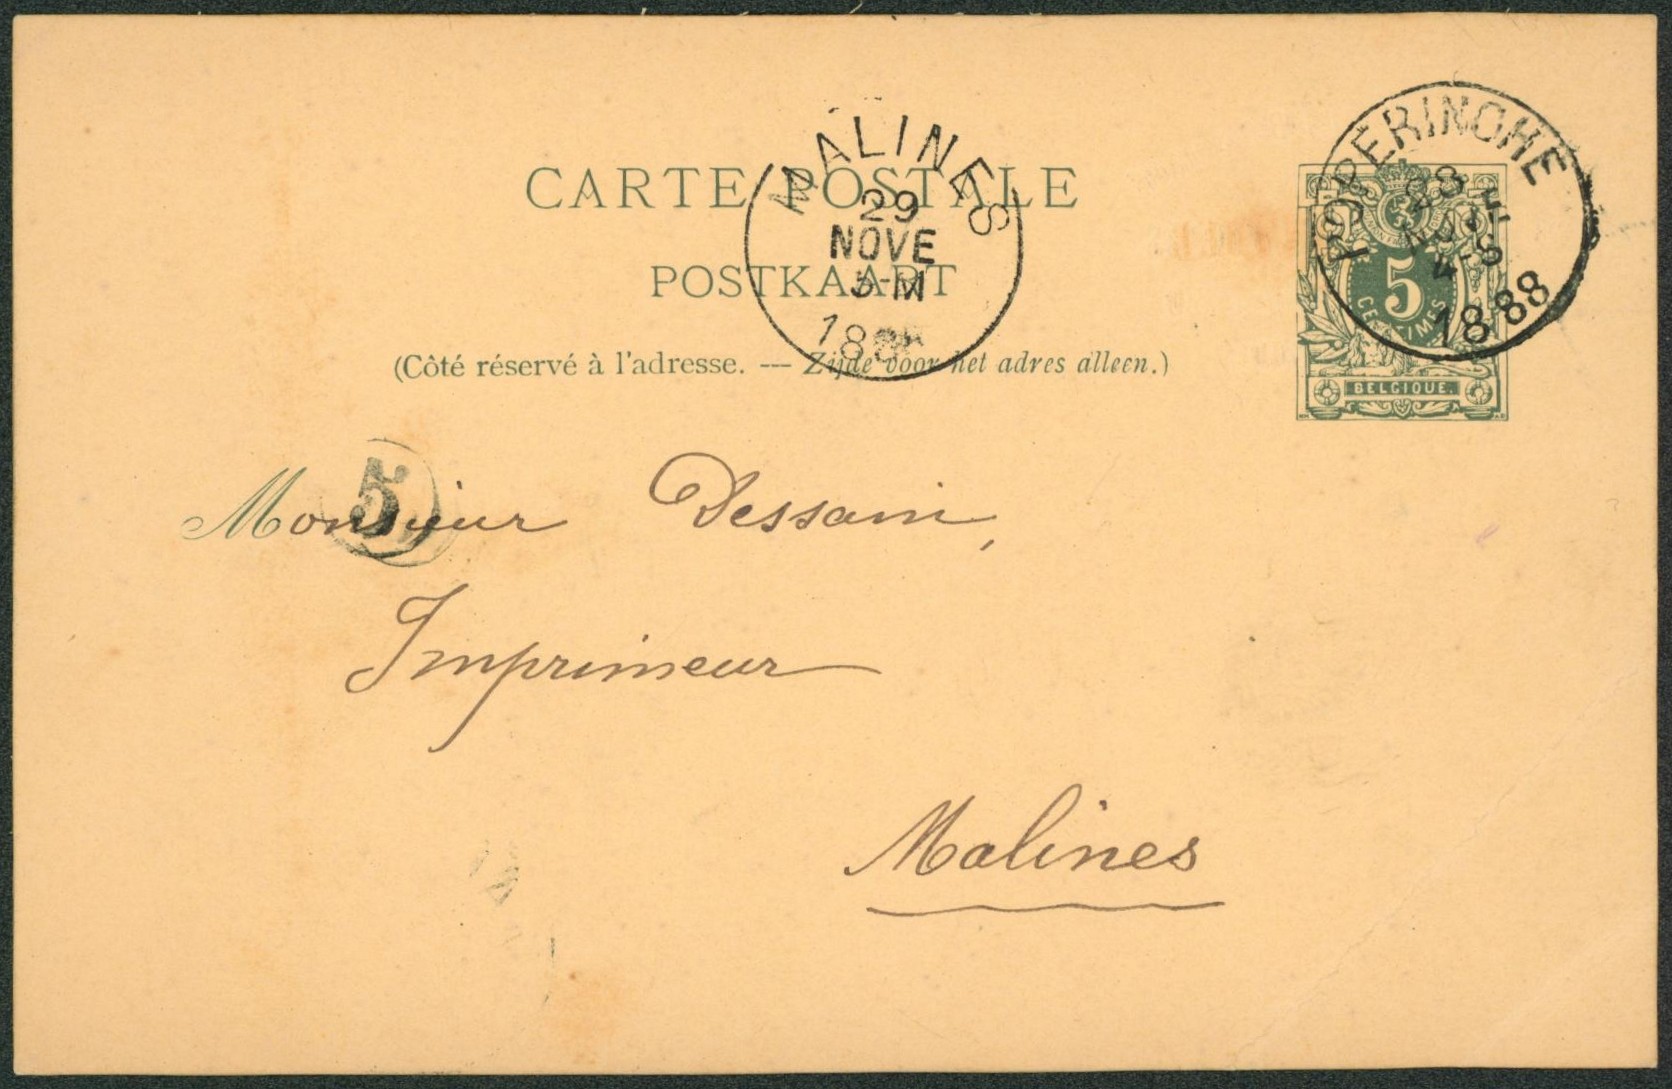 CARTE POSTALE
POSTKAART
(Côté réservé à l'adresse. — Zijde voor het adres alleen.)
MALINES
29
NOVE
5-M
188
POPERINGHE
28
NOVE
4-S
1888
5
CENTIMES
BELGIQUE.
5
Monsieur Dessain,
Imprimeur
Malines